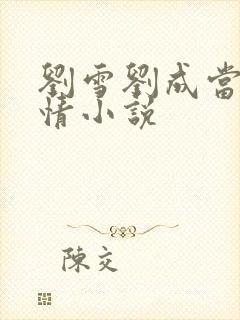 劉雪劉成當
情小說
陳交